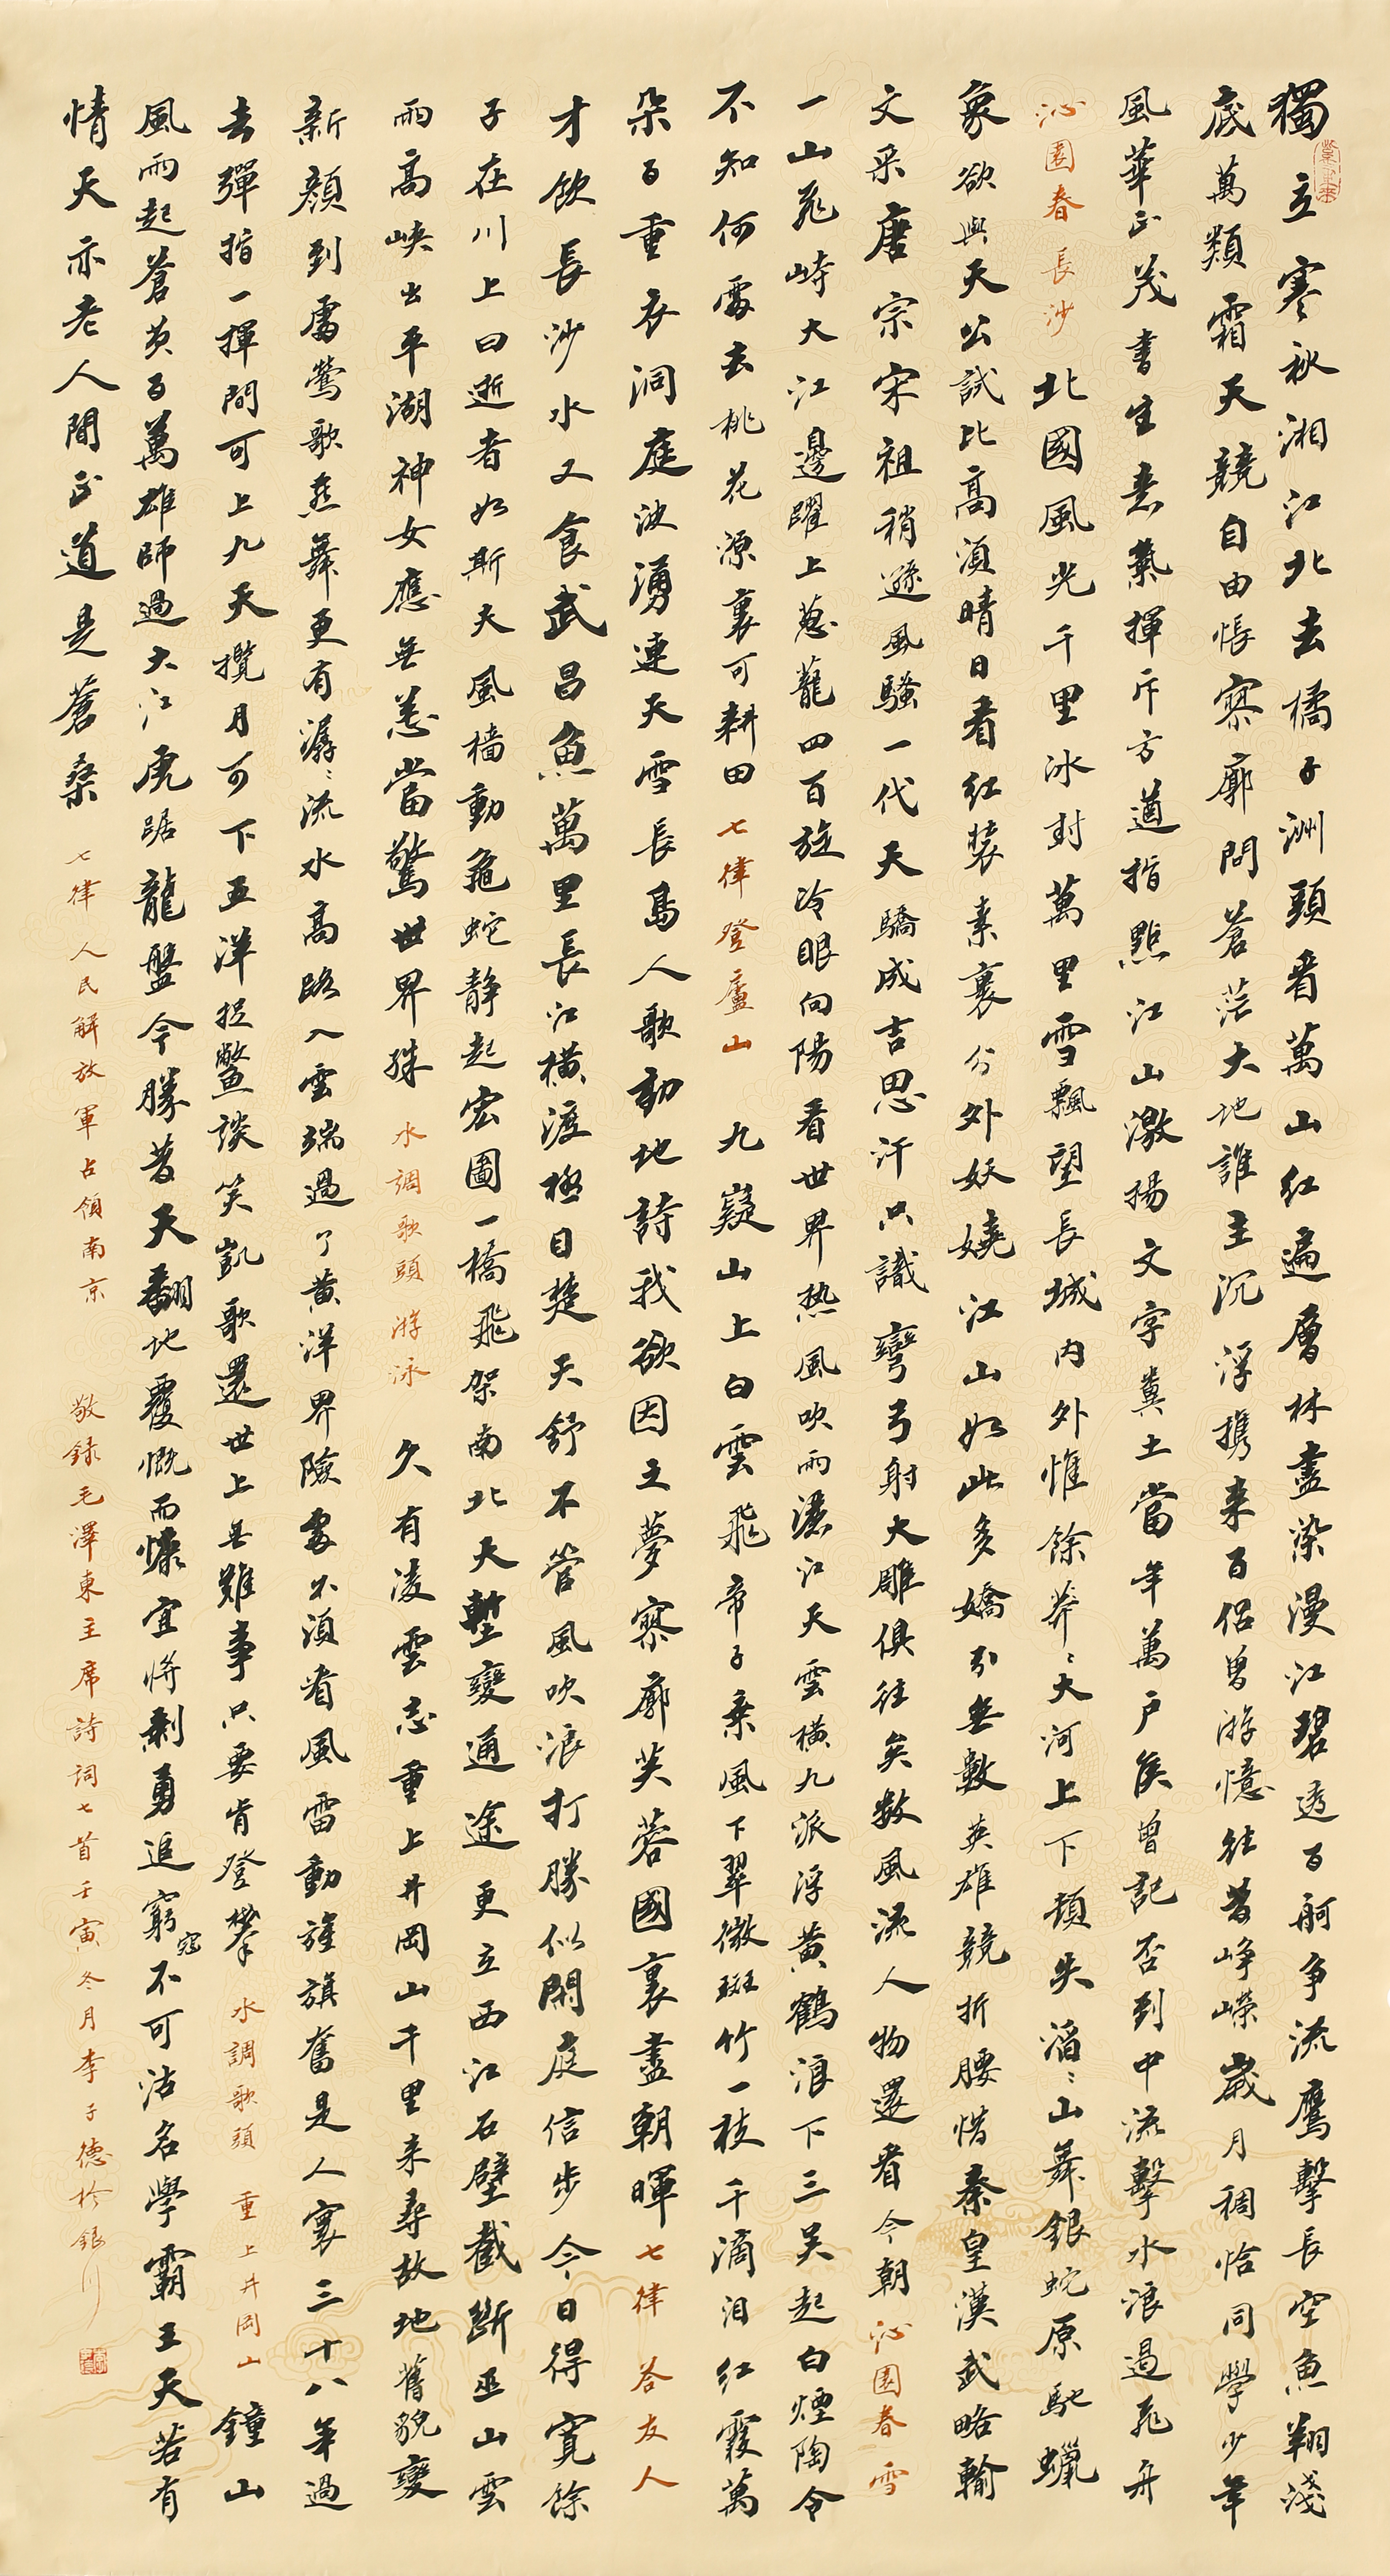 獨立寒秋湘江北去橘子洲頭看萬山紅遍層林盡染漫江碧透百舸争流鷹擊長空魚翔淺
底萬類霜天競自由悵寥廓問蒼茫大地誰主沉浮攜来百侣曾游憶往昔崢嶸歲月稠恰同學少年
風華正茂書生意氣揮斥方遒指點江山激揚文字糞土當年萬户侯曾記否到中流擊水浪遏飛舟
沁園春長沙 北國風光千里冰封萬里雪飄望長城内外惟餘莽〻大河上下頓失滔〻山舞銀蛇原馳蠟
象欲與天公試比高須晴日看红装素裹分外妖嬈江山如此多嬌引無數英雄競折腰惜秦皇漢武略輸
文采唐宗宋祖稍遜風騷一代天驕成吉思汗只識彎弓射大雕俱往矣数風流人物還看今朝 沁園春雪
一山飛峙大江邊躍上葱蘢四百旋冷眼向陽看世界热風吹雨灑江天雲横九派浮黄鶴浪下三吴起白煙陶令
不知何處去桃花源裏可耕田 七律登廬山 九嶷山上白雲飛帝子乘風下翠微斑竹一枝千滴泪红霞萬
朵百重衣洞庭波湧連天雪長島人歌動地詩我欲因之夢寥廓芙蓉國裏盡朝暉 七律 答友人
才飲長沙水又食武昌魚萬里長江横渡極目楚天舒不管風吹浪打勝似閑庭信步今日得寬餘
子在川上曰逝者如斯夫風檣動龜蛇静起宏圖一橋飛架南北天塹變通途更立西江石壁截斷巫山雲
雨高峽出平湖神女應無恙當驚世界殊 水調歌頭游泳 久有凌雲志重上井岡山千里来尋故地舊貌變
新顔到處鶯歌燕舞更有潺〻流水高路入雲端過了黄洋界險處不須看風雷動旌旗奮是人寰三十八年過
去彈指一揮間可上九天攬月可下五洋捉鱉談笑凱歌還世上無難事只要肯登攀 水調歌頭 重上井岡山 鐘山
風雨起蒼黄百萬雄師過大江虎踞龍盤今勝昔天翻地覆慨而慷宜將剩勇追窮寇不可沽名學霸王天若有
情天亦老人間正道是蒼桑 七律 人民解放軍占領南京 敬録毛澤東主席詩詞七首壬寅冬月李子德於銀川